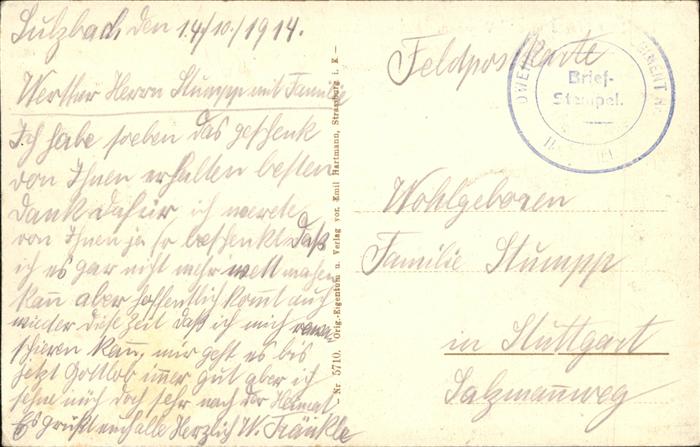 Sulzbach, den 14/10./1914.
Werther Herrn Stumpp mit Familie
Ich habe soeben das geschenk
von Ihnen erhalten besten
Dank dafür, ich werete
von Ihnen ja so beschenkt daß
ich es gar nicht mehr wett machen
kan̄ aber hoffentlich kom̄t auch
wieder diese Zeit daß ich mich revan-
schieren kan̄, mir geht es bis
jetzt Gottlob im̄er gut aber ich
sehne mich doch sehr nach der Heimat
Es grüßt euch alle Herzlich W. Fränkle
Nr 5710. Orig.-Eigentum u. Verlag von Emil Hartmann, Strassburg i. E.
Feldpostkarte
Brief-
Stempel.
Wohlgeboren
Familie Stumpp
in Stuttgart
Salzman̄weg